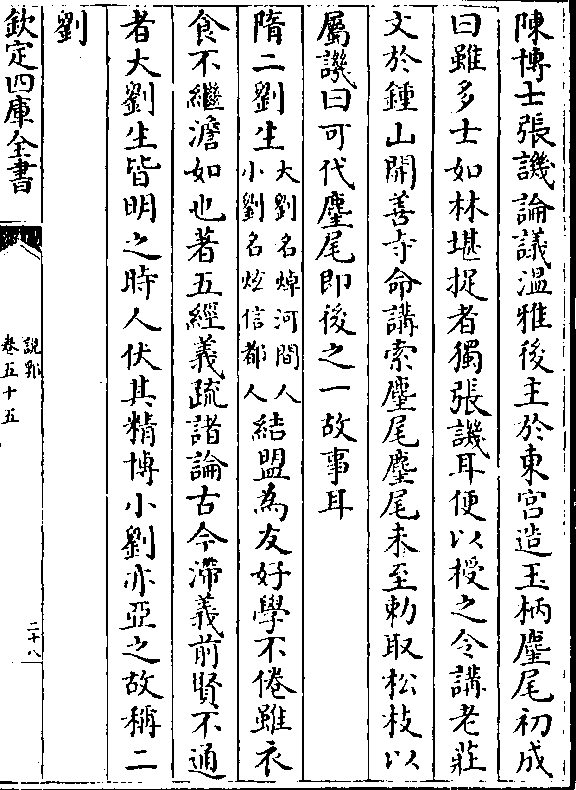 陳博士張譏論議溫雅後主於東宮造玉柄麈尾初成
曰雖多士如林堪捉者獨張譏耳便以授之令講老莊
文於鍾山開善寺命講索麈尾麈尾未至勅取松枝以
屬譏曰可代麈尾即後之一故事耳
隋二劉生大劉名焯河間人
小劉名炫信都人結盟為友好學不倦雖衣
食不繼澹如也著五經義疏諸論古今滯義前賢不通
者大劉生皆明之時人伏其精博小劉亦亞之故稱二
劉
欽定四庫全書
說郛
卷五十五
二十八